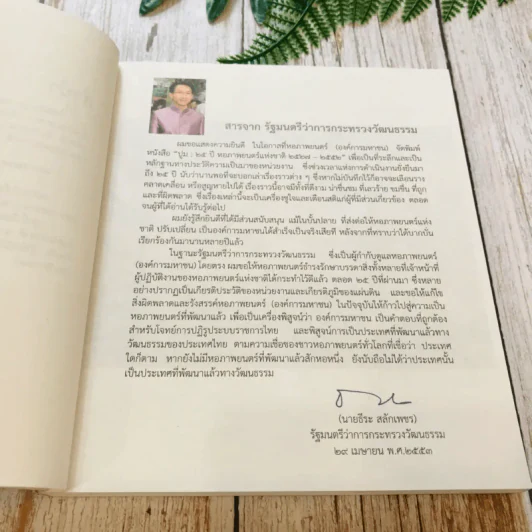 สารจาก รัฐมนตรีว่าการกระทรวงวัฒนธรรม
ผมขอแสดงความยินดี ในโอกาสที่หอภาพยนตร์ (องค์การมหาชน) จัดพิมพ์
หนังสือ "ปูม : ๒๕ ปี หอภาพยนตร์แห่งชาติ ๒๕๒๗ – ๒๕๕๒" เพื่อเป็นที่ระลึกและเป็น
หลักฐานทางประวัติความเป็นมาของหน่วยงาน ซึ่งช่วงเวลาแห่งการดำเนินงานยั่งยืนมา
ถึง ๒๕ ปี นับว่านานพอที่จะบอกเล่าเรื่องราวต่าง ๆ ซึ่งหากไม่บันทึกไว้ก็อาจจะเลือนราง
คลาดเคลื่อน หรือสูญหายไปได้ เรื่องราวนี้อาจมีทั้งที่ดีงาม น่าชื่นชม ที่เลวร้าย ขมขื่น ที่ถูก
และที่ผิดพลาด ซึ่งเรื่องเหล่านี้จะเป็นเครื่องชูใจและเตือนสติแก่ผู้ที่มีส่วนเกี่ยวข้อง ตลอด
จนผู้ที่ได้อ่านได้รับรู้ต่อไป
ผมยังรู้สึกยินดีที่ได้มีส่วนสนับสนุน แม้ในบั้นปลาย ที่ส่งต่อให้หอภาพยนตร์แห่ง
ชาติ ปรับเปลี่ยน เป็นองค์การมหาชนได้สำเร็จเป็นจริงเสียที หลังจากที่ทราบว่าได้บากบั่น
เรียกร้องกันมานานหลายปีแล้ว
ในฐานะรัฐมนตรีว่าการกระทรวงวัฒนธรรม ซึ่งเป็นผู้กำกับดูแลหอภาพยนตร์
(องค์การมหาชน) โดยตรง ผมขอให้หอภาพยนตร์ธำรงรักษาบรรดาสิ่งทั้งหลายที่เจ้าหน้าที่
ผู้ปฏิบัติงานของหอภาพยนตร์แห่งชาติได้กระทำไว้ดีแล้ว ตลอด ๒๕ ปีที่ผ่านมา ซึ่งหลาย
อย่างปรากฏเป็นเกียรติประวัติของหน่วยงานและเกียรติภูมิของแผ่นดิน และขอให้แก้ไข
สิ่งผิดพลาดและรังสรรค์หอภาพยนตร์ (องค์การมหาชน) ในปัจจุบันให้ก้าวไปสู่ความเป็น
หอภาพยนตร์ที่พัฒนาแล้ว เพื่อเป็นเครื่องพิสูจน์ว่า องค์การมหาชน เป็นคำตอบที่ถูกต้อง
สำหรับโจทย์การปฏิรูประบบราชการไทย และพิสูจน์การเป็นประเทศที่พัฒนาแล้วทาง
วัฒนธรรมของประเทศไทย ตามความเชื่อของชาวหอภาพยนตร์ทั่วโลกที่เชื่อว่า ประเทศ
ใดก็ตาม หากยังไม่มีหอภาพยนตร์ที่พัฒนาแล้วสักหอหนึ่ง ยังนับถือไม่ได้ว่าประเทศนั้น
เป็นประเทศที่พัฒนาแล้วทางวัฒนธรรม
(นายธีระ สลักเพชร)
รัฐมนตรีว่าการกระทรวงวัฒนธรรม
๒๙ เมษายน พ.ศ.๒๕๕๓